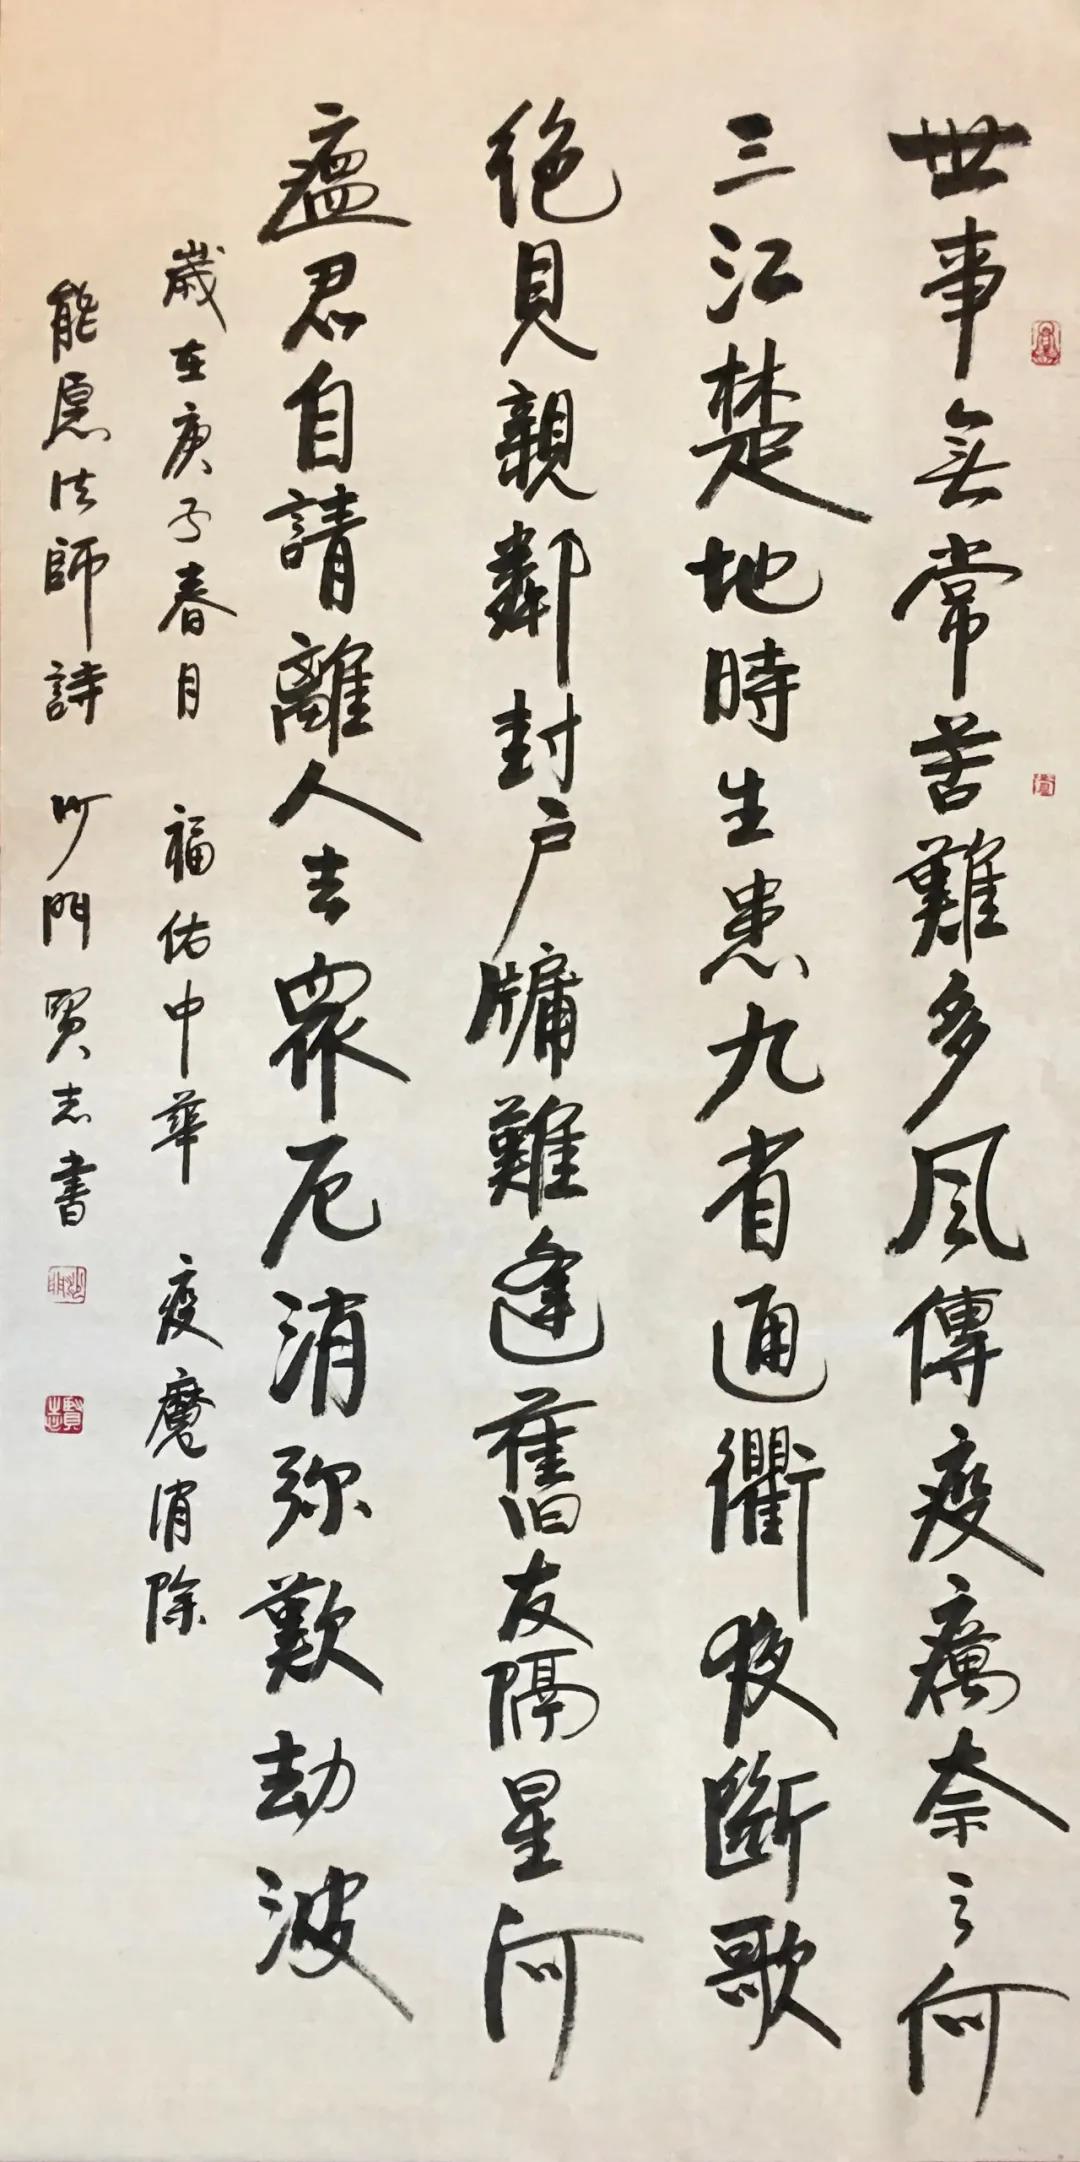 世事無常苦難多風傳疫癘奈之何
三江楚地時生患九省通衢夜斷歌
絕見親鄰封戶牖難逢舊友隔星河
瘟君自請離人去眾厄消弥歎劫波
歲在庚子春月 福佑中華 疫魔消除
能愿法師詩 沙門賢志書
賢志